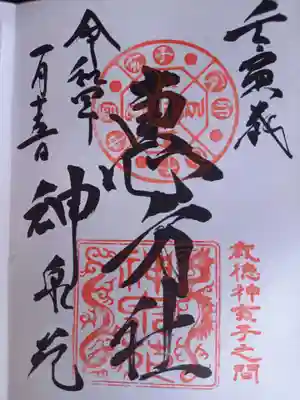 壬寅歳
歳徳神亥子之間
恵方社
令和四年
一月十五日
神泉苑